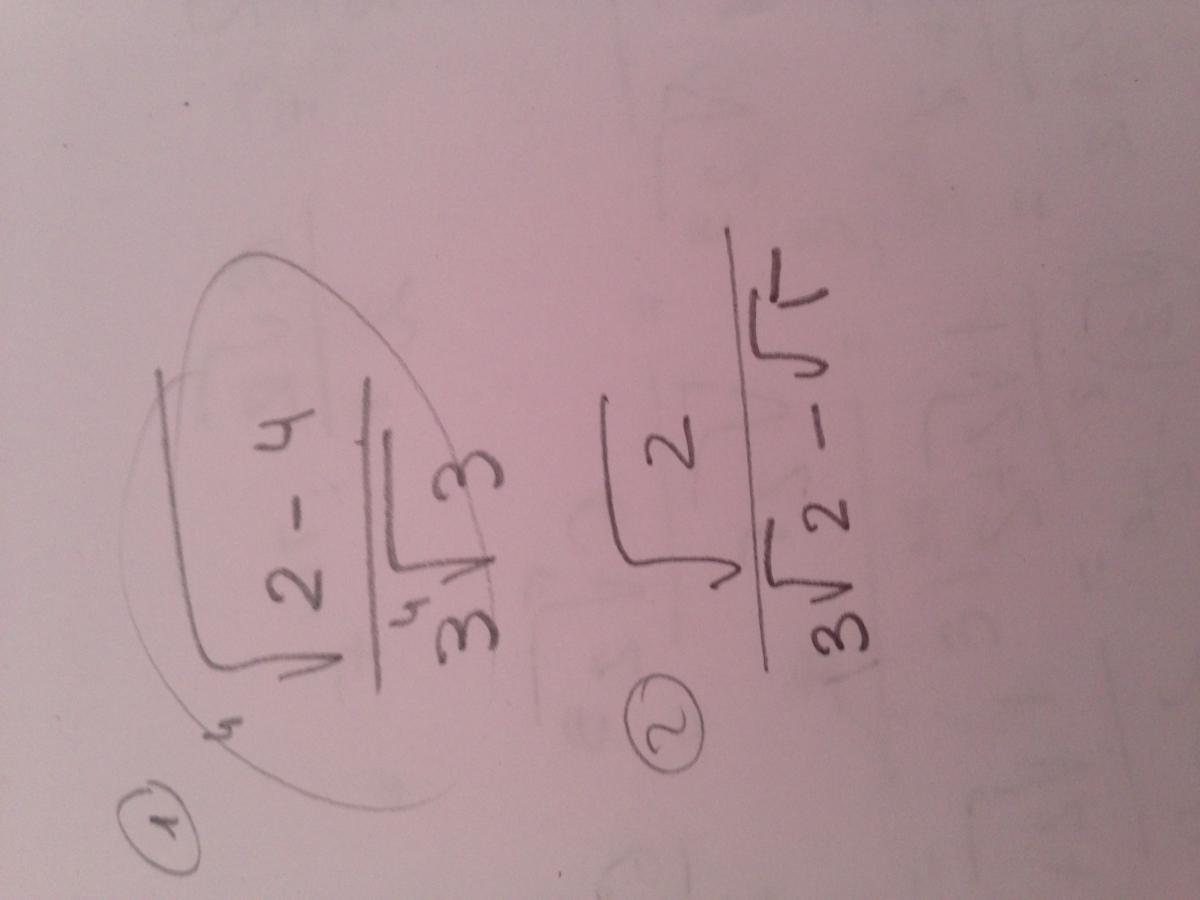 1
4√2-4
3 4√3
2
√2
3√2 - √